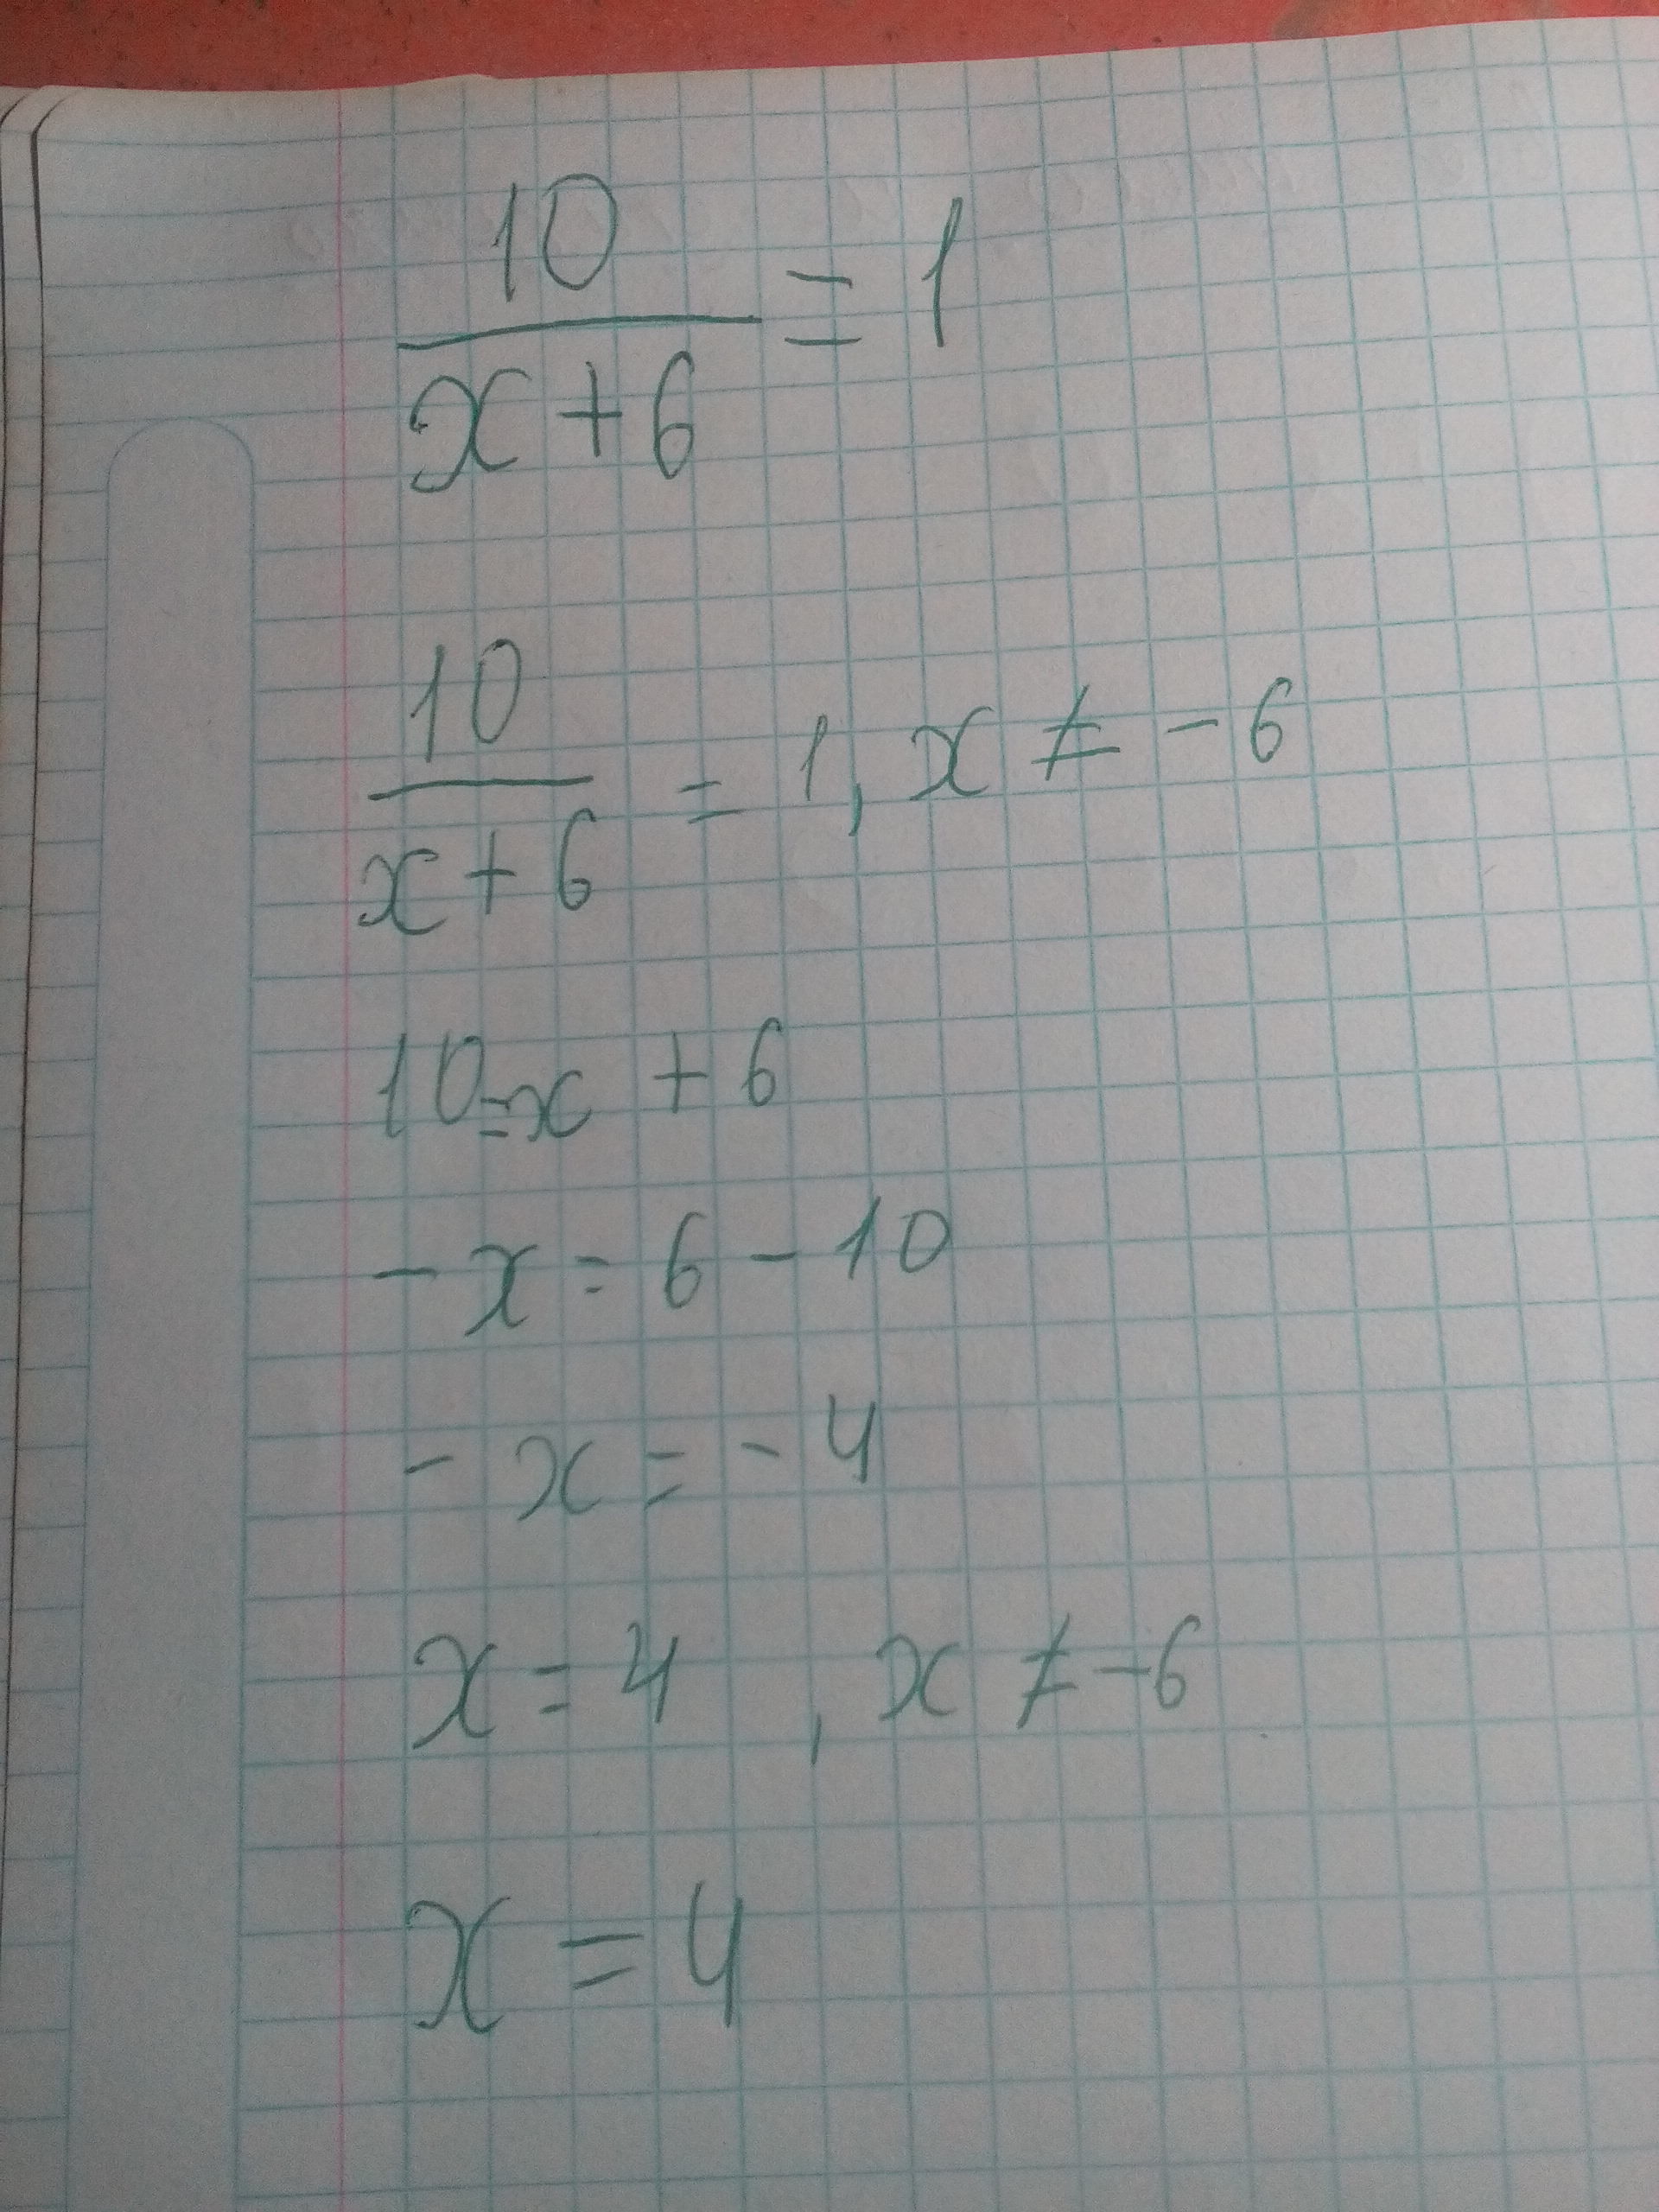 10/(x+6) = 1
10/(x+6) = 1, x ≠ -6
10=x + 6
-x = 6 - 10
-x = -4
x = 4 , x ≠ -6
x = 4